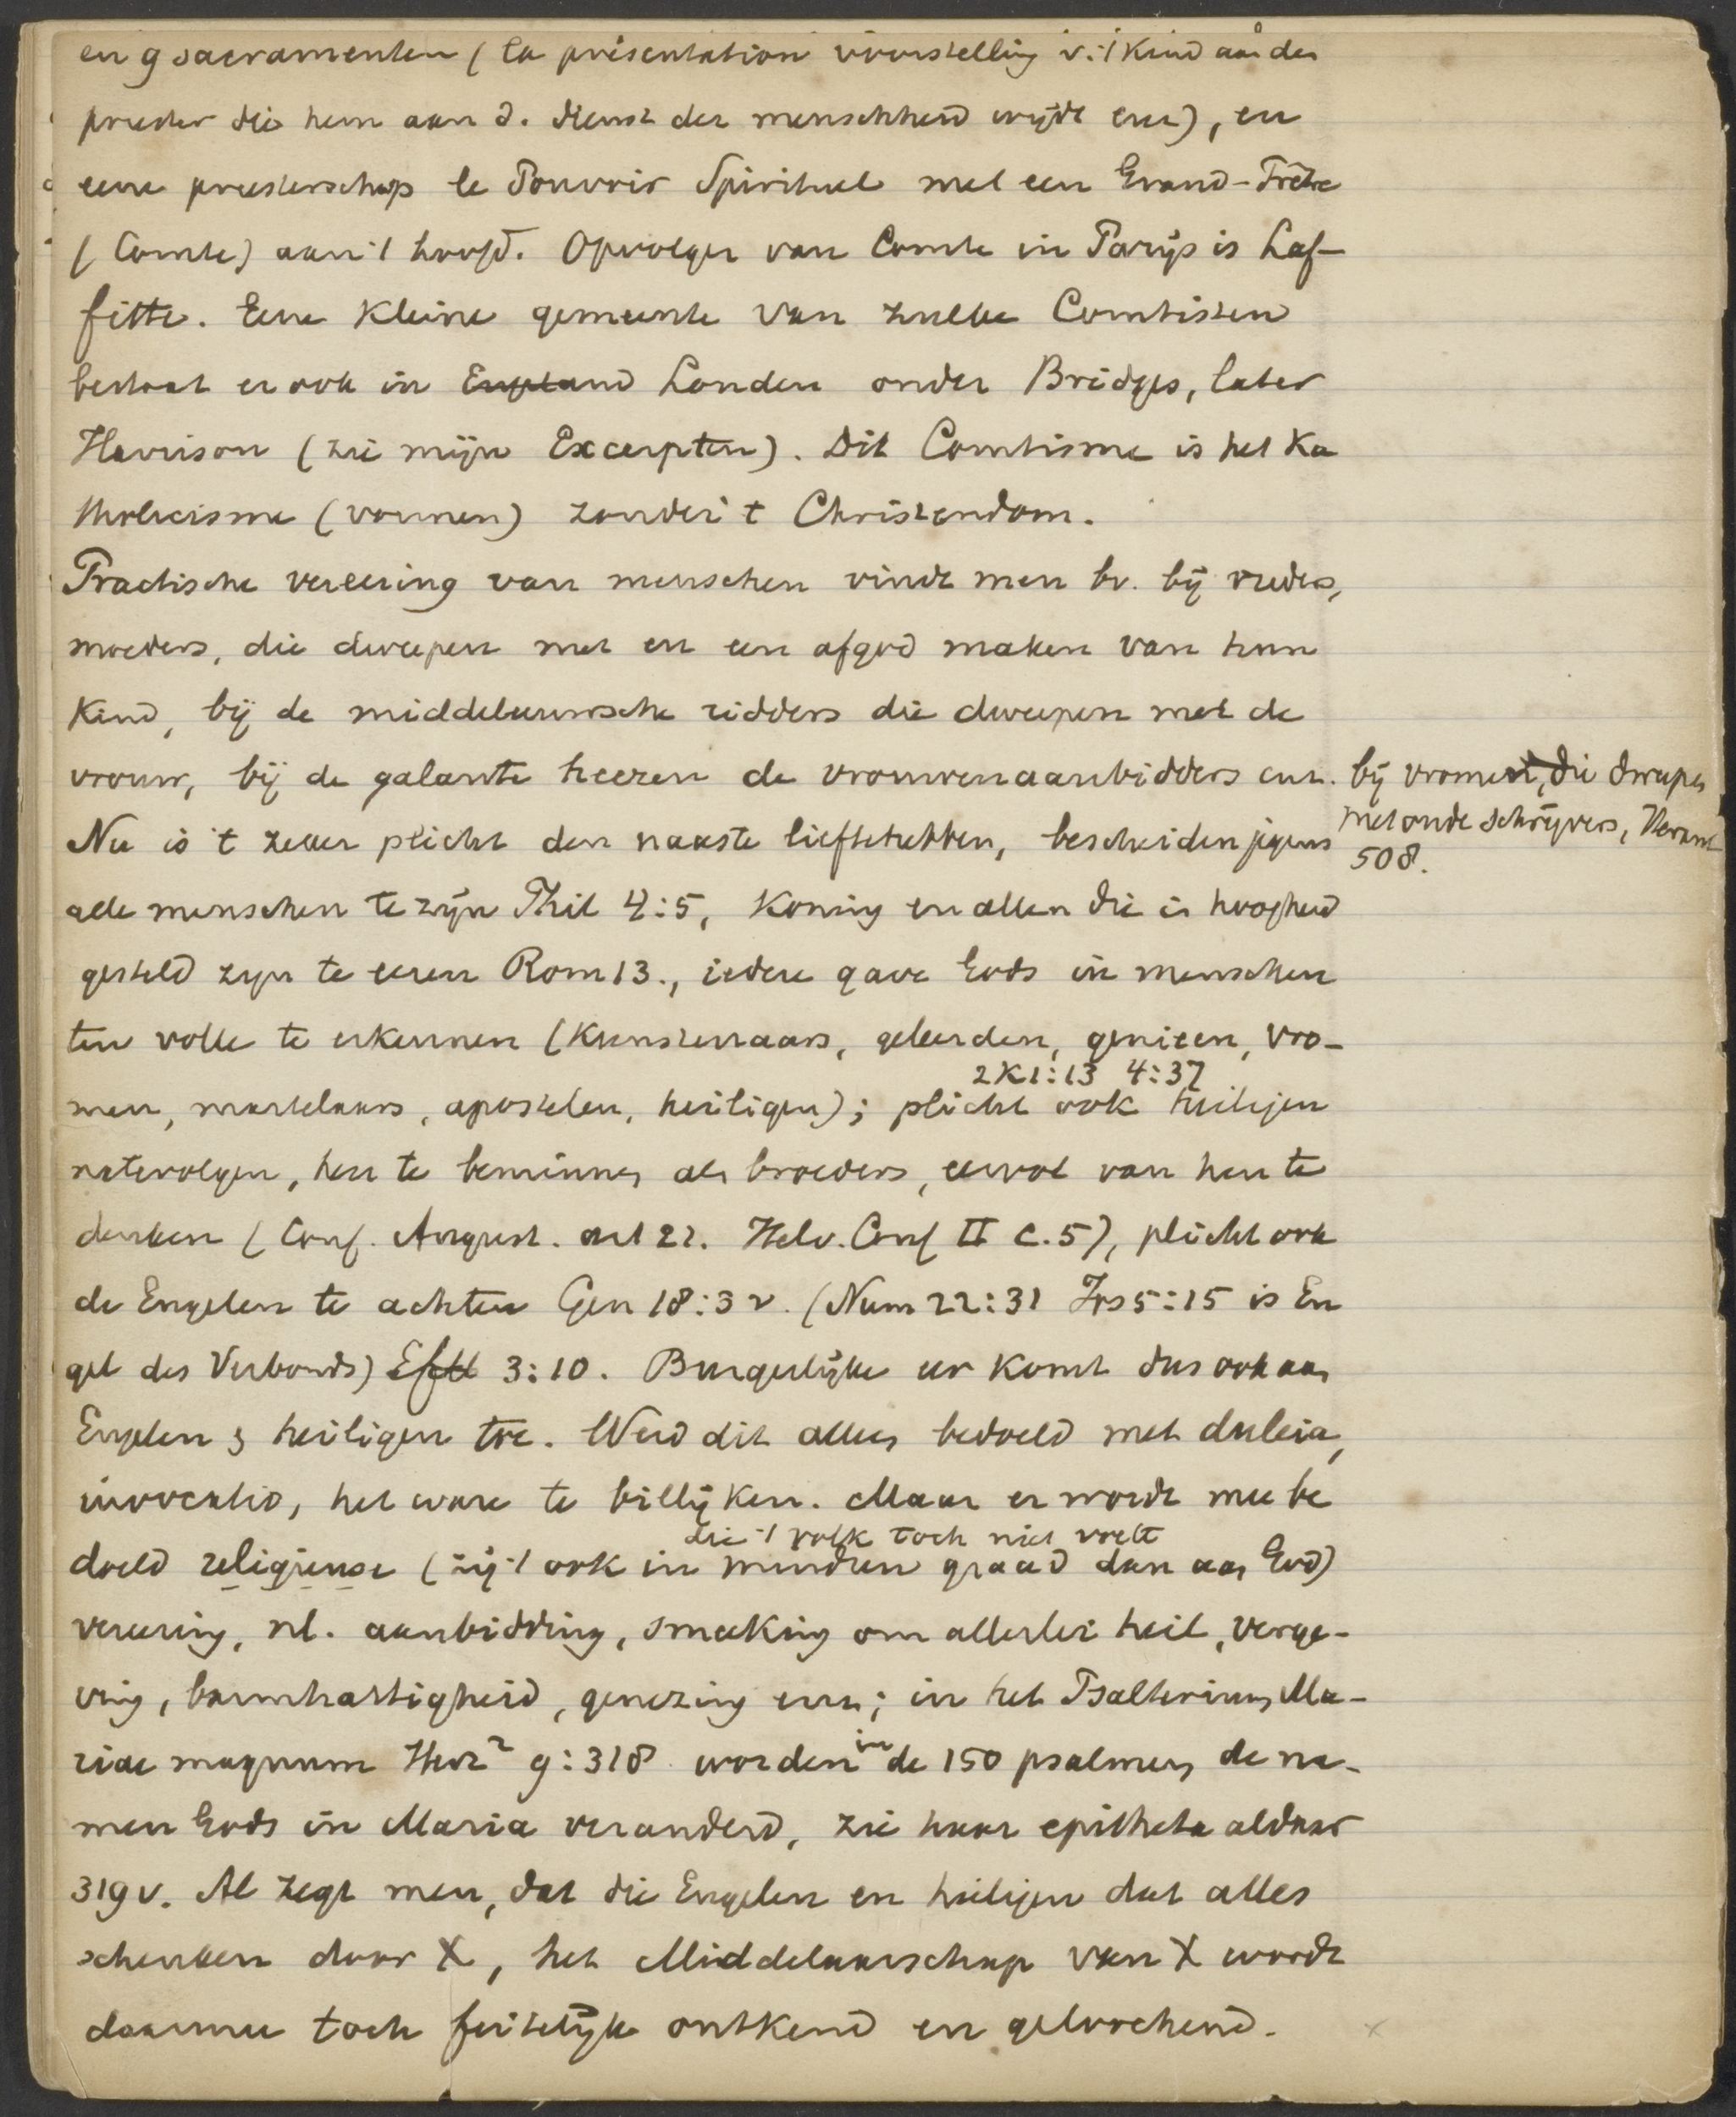 en 9 sacramenten (la présentation voorstelling v. 't kind aan den
priester die hem aan d. dienst der menschheid wijdt enz), en
eene priesterschap le Pouvoir Spirituel met een Grand-Prêtre
(Comte) aan 't hoofd. Opvolger van Comte in Parijs is Laf-
fitte. Eene kleine gemeente van zulke Comtisten
bestaat er ook in England Londen onder Bridges, later
Harrison (zie mijn Excerpten). Dit Comtisme is het Ka
tholicisme (vormen) zonder 't Christendom.
Practische vereering van menschen vindt men bv. bij vaders,
moeders, die dweepen met en een afgod maken van hun
kind, bij de middeleeuwsche ridders die dweepen met de
vrouw, bij de galante heeren de vrouwenaanbidders enz. bij vromen, die dweepen
met oude schrijvers,
508.
Nu is 't zeker plicht den naaste lief te hebben, bescheiden jegens
alle menschen te zijn Phil 4:5, Koning en allen die in hoogheid
gesteld zijn te eeren Rom 13., iedere gave Gods in menschen
ten volle te erkennen (Kunstenaars, geleerden, genieen, vro-
2K1:13 4:37
men, martelaars, apostelen, heiligen); plicht ook heiligen
na te volgen, hen te beminnen als broeders, eervol van hen te
denken (Conf. August. art 21. Helv. Conf II c.5), plicht ook
de Engelen te achten Gen 18:3 v. (Num 22:31 Jos 5:15 is En
gel des Verbonds) Efch 3:10. Burgerlijke eer komt dus ook aan
Engelen & heiligen toe. Werd dit alles bedoeld met duleia,
invocatio, het ware te billijken. Maar er wordt mee be
die 't volk toch niet voelt
doeld religieuse (zij 't ook in minderen graad dan aan God)
vereering, nl. aanbidding, smeeking om allerlei heil, verge-
ving, barmhartigheid, genezing enz; in het Psalterium Ma-
riae magnum Herz² 9:318 worden in de 150 psalmen de na-
men Gods in Maria veranderd, zie haar epitheta aldaar
319 v. Al zegt men, dat die Engelen en heiligen dat alles
schenken door X, het Middelaarschap van X wordt
daarmee toch feitelijk ontkend en geloochend.